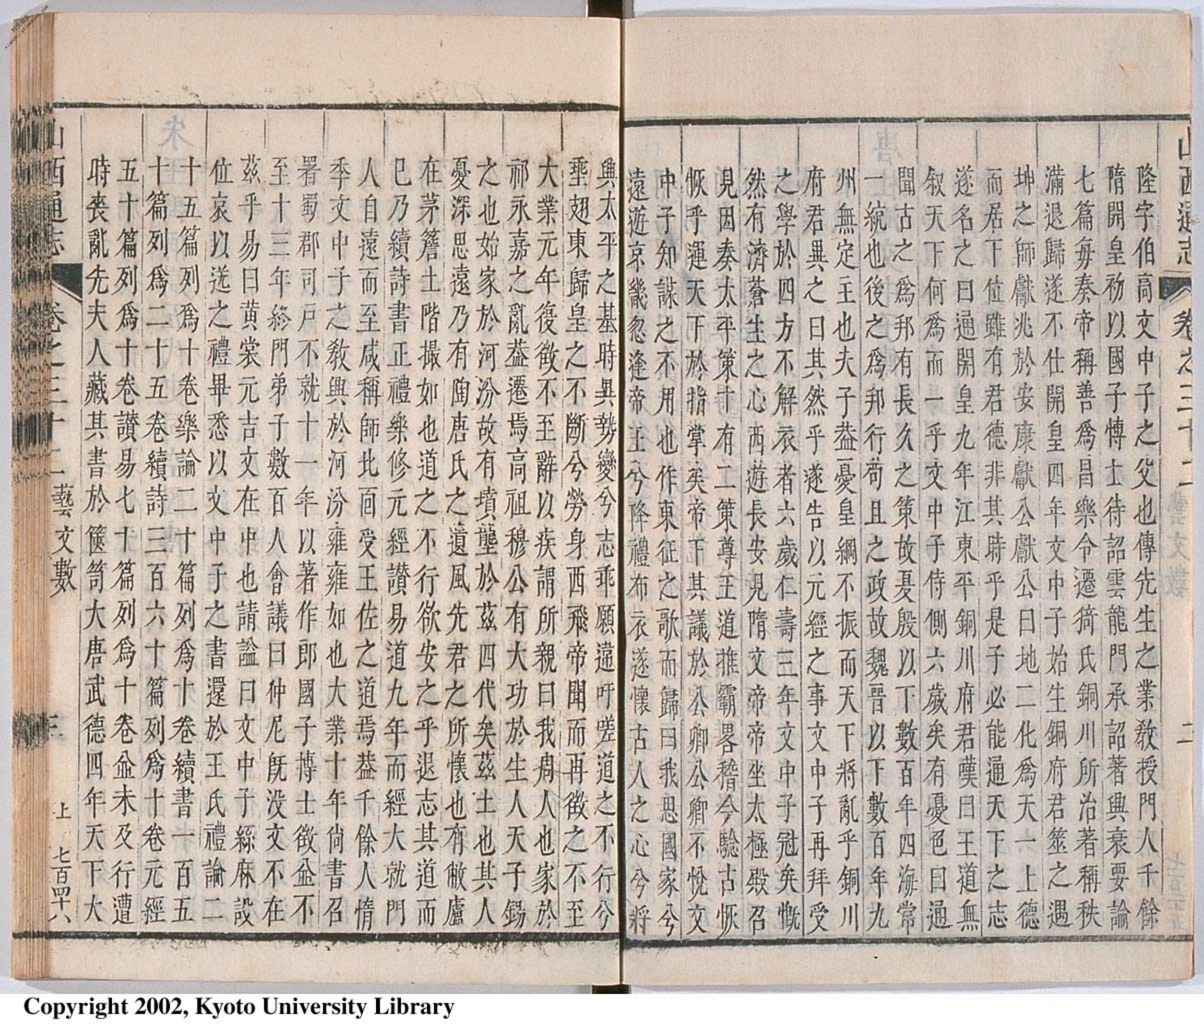 山西通志 卷之三十二 二
隆字伯高文中子之父也傳先生之業敎授門人千餘
隋開皇初以國子博士待詔雲龍門承詔著興衰要論
七篇每奏帝稱善爲昌樂令遷猗氏銅川所治著稱秩
滿退歸遂不仕開皇四年文中子始生銅府君筮之遇
坤之師獻兆於安康獻公獻公曰地二化爲天一上德
而居下位雖有君德非其時乎是子必能通天下之志
遂名之曰通開皇九年江東平銅川府君嘆曰王道無
叙天下何爲而一乎文中子侍側六歲矣有憂色曰通
聞古之爲邦有長久之策故夏殷以下數百年四海常
一統也後之爲邦行苟且之政故魏晉以下數百年九
州無定主也夫子葢憂皇綱不振而天下將亂乎銅川
府君異之曰其然乎遂告以元經之事文中子再拜受
之學於四方不解衣者六歲仁壽三年文中子冠矣慨
然有濟蒼生之心西遊長安見隋文帝帝坐太極殿召
見因奏太平策十有二策尊王道推霸畧稽今驗古恢
恢乎運天下於指掌矣帝下其議於公卿公卿不悅文
中子知謀之不用也作東征之歌而歸曰我思國家兮
遠遊京畿忽逢帝王兮降禮布衣遂懷古人之心兮將
興太平之基時異勢變兮志乖願違吁嗟道之不行兮
垂翅東歸皇之不斷兮勞身西飛帝聞而再徵之不至
大業元年復徵不至辭以疾謂所親曰我周人也家於
祁永嘉之亂葢遷焉高祖穆公有大功於生人天子錫
之也始家於河汾故有墳壟於茲四代矣茲土也其人
憂深思遠乃有陶唐氏之遺風先君之所懷也有敝廬
在茅簷土階撮如也道之不行欲安之乎退志其道而
已乃續詩書正禮樂修元經讃易道九年而經大就門
人自遠而至咸稱師北面受王佐之道焉葢千餘人惰
季文中子之敎興於河汾雍雍如也大業十年尚書召
署蜀郡司戶不就十一年以著作郎國子博士徵並不
至十三年終門弟子數百人會議曰仲尼旣没文不在
茲乎易曰黃裳元吉文在中也請謚曰文中子緦麻設
位哀以送之禮畢悉以文中子之書還於王氏禮論二
十五篇列爲十卷樂論二十篇列爲十卷續書一百五
十篇列爲二十五卷續詩三百六十篇列爲十卷元經
五十篇列爲十卷讃易七十篇列爲十卷並未及行遭
時喪亂先夫人藏其書於篋笥大唐武德四年天下大
山西通志 卷之三十二 藝文數 三 上 七百四十八
Copyright 2002, Kyoto University Library